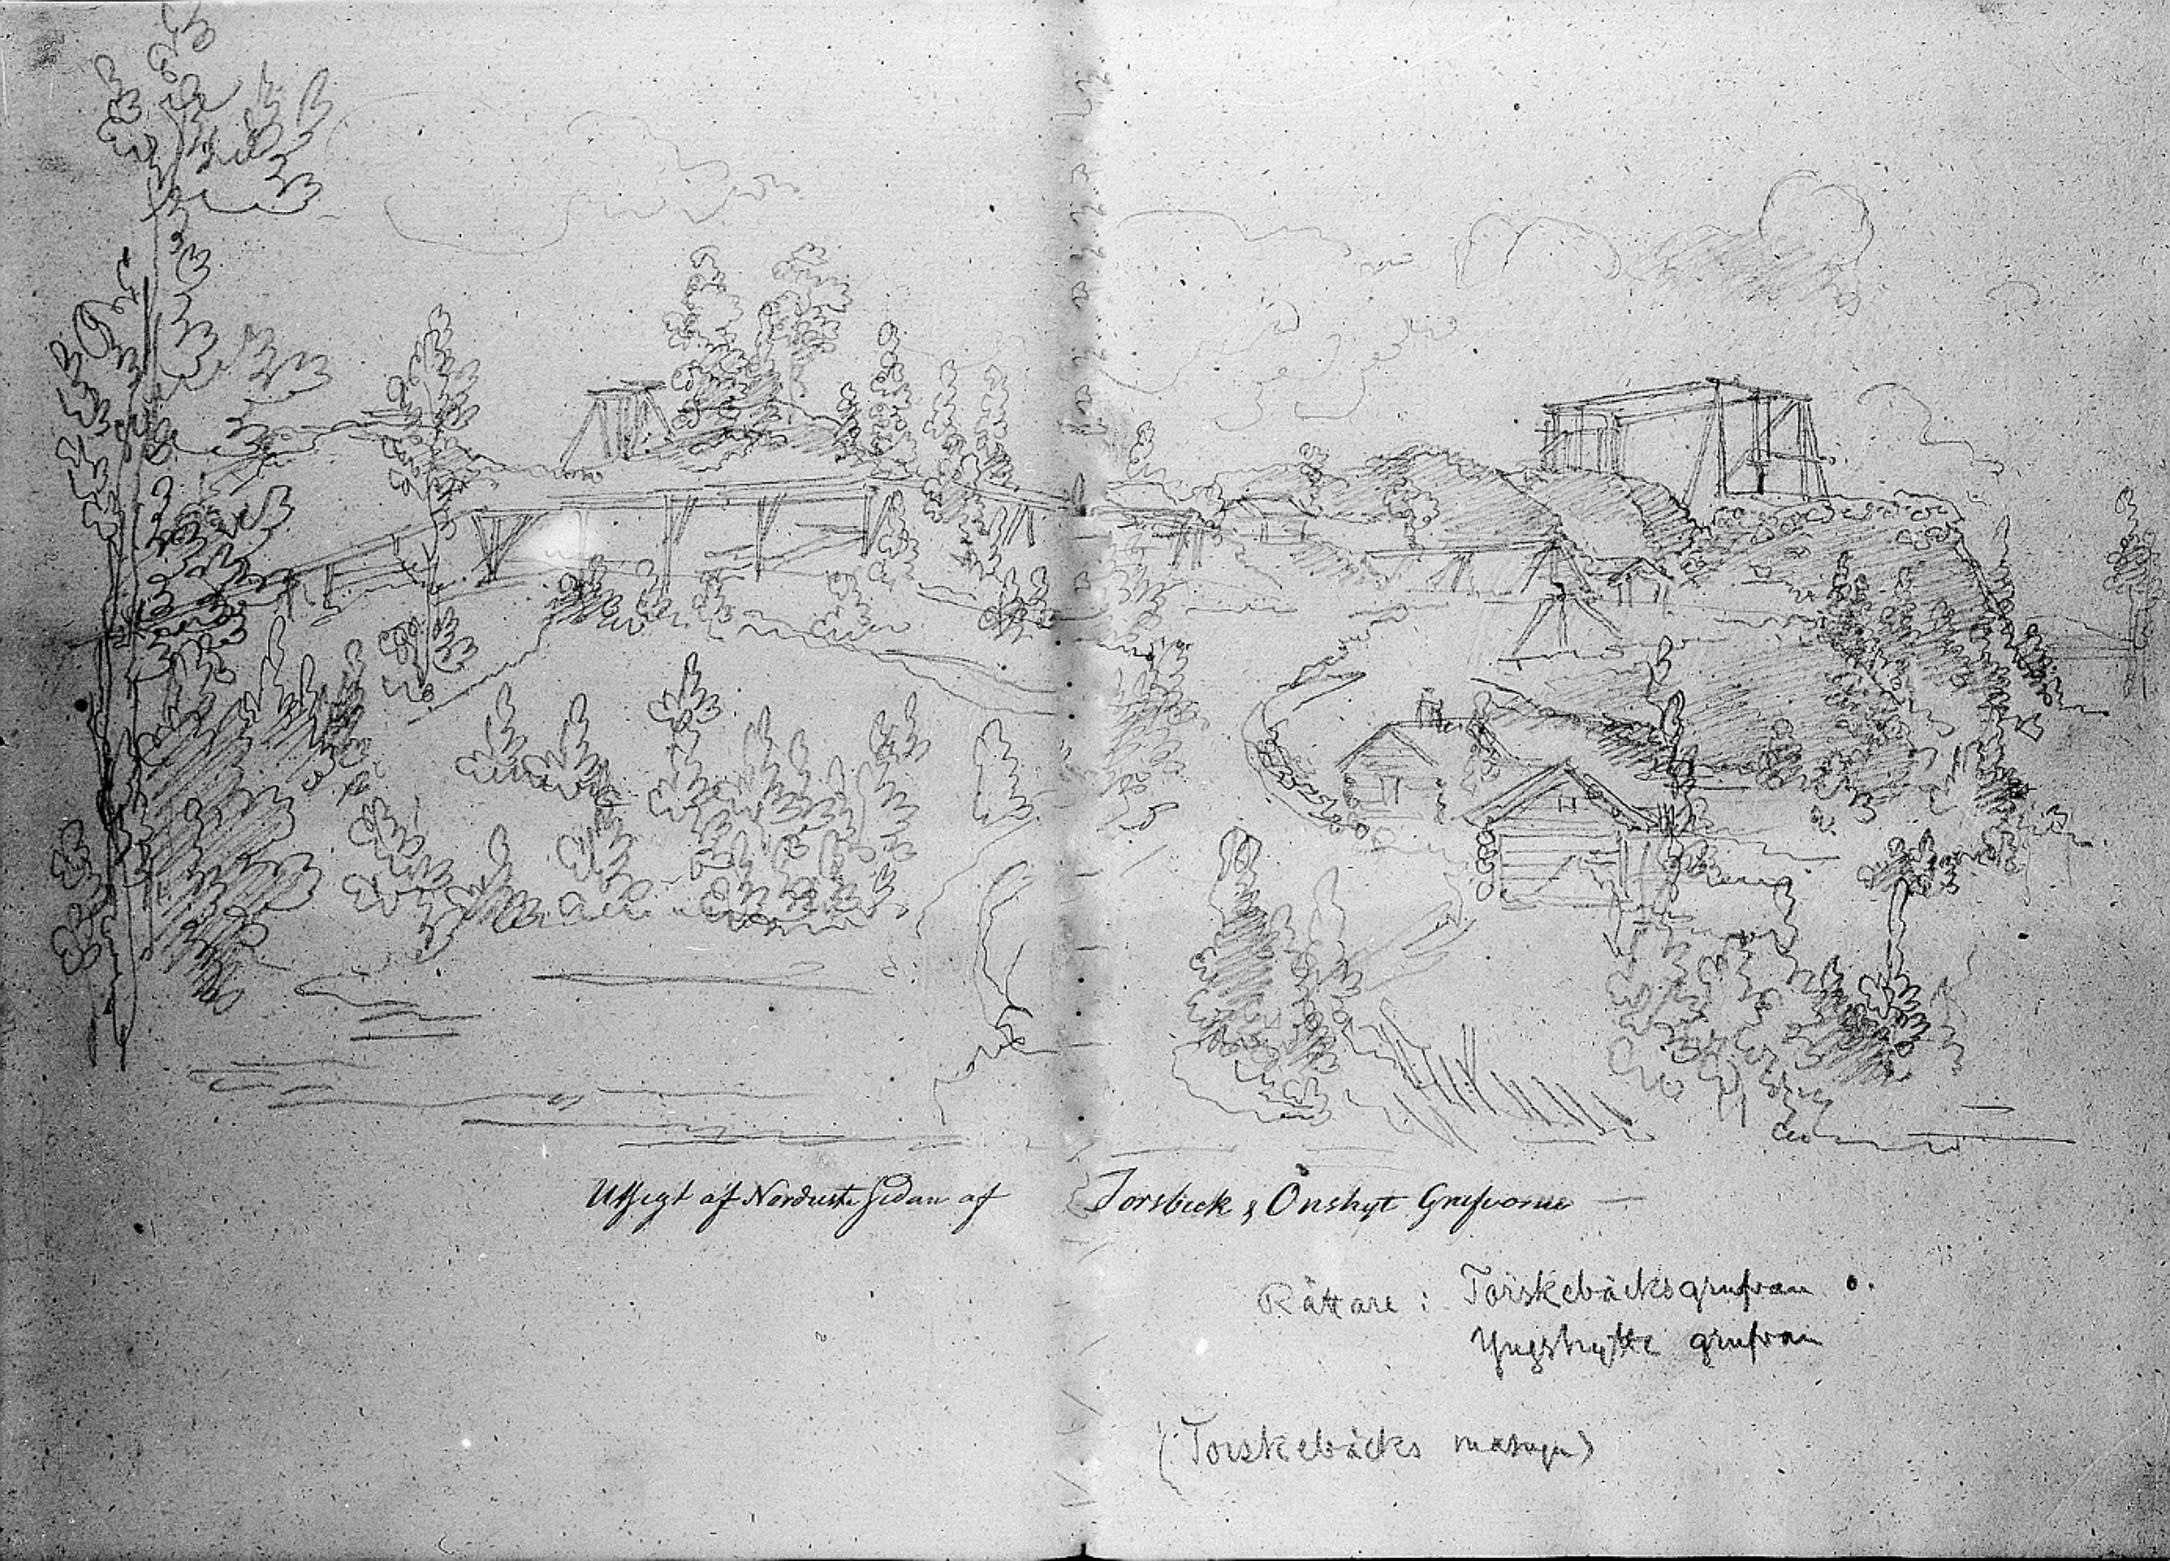 Utsigt af Nordust Sidan af Torsbeck & Önshyt Grufvorne
Rättare : Torskebäcksgrufvan o.
Yngshytte grufvan
(Torskebäcks masugn)